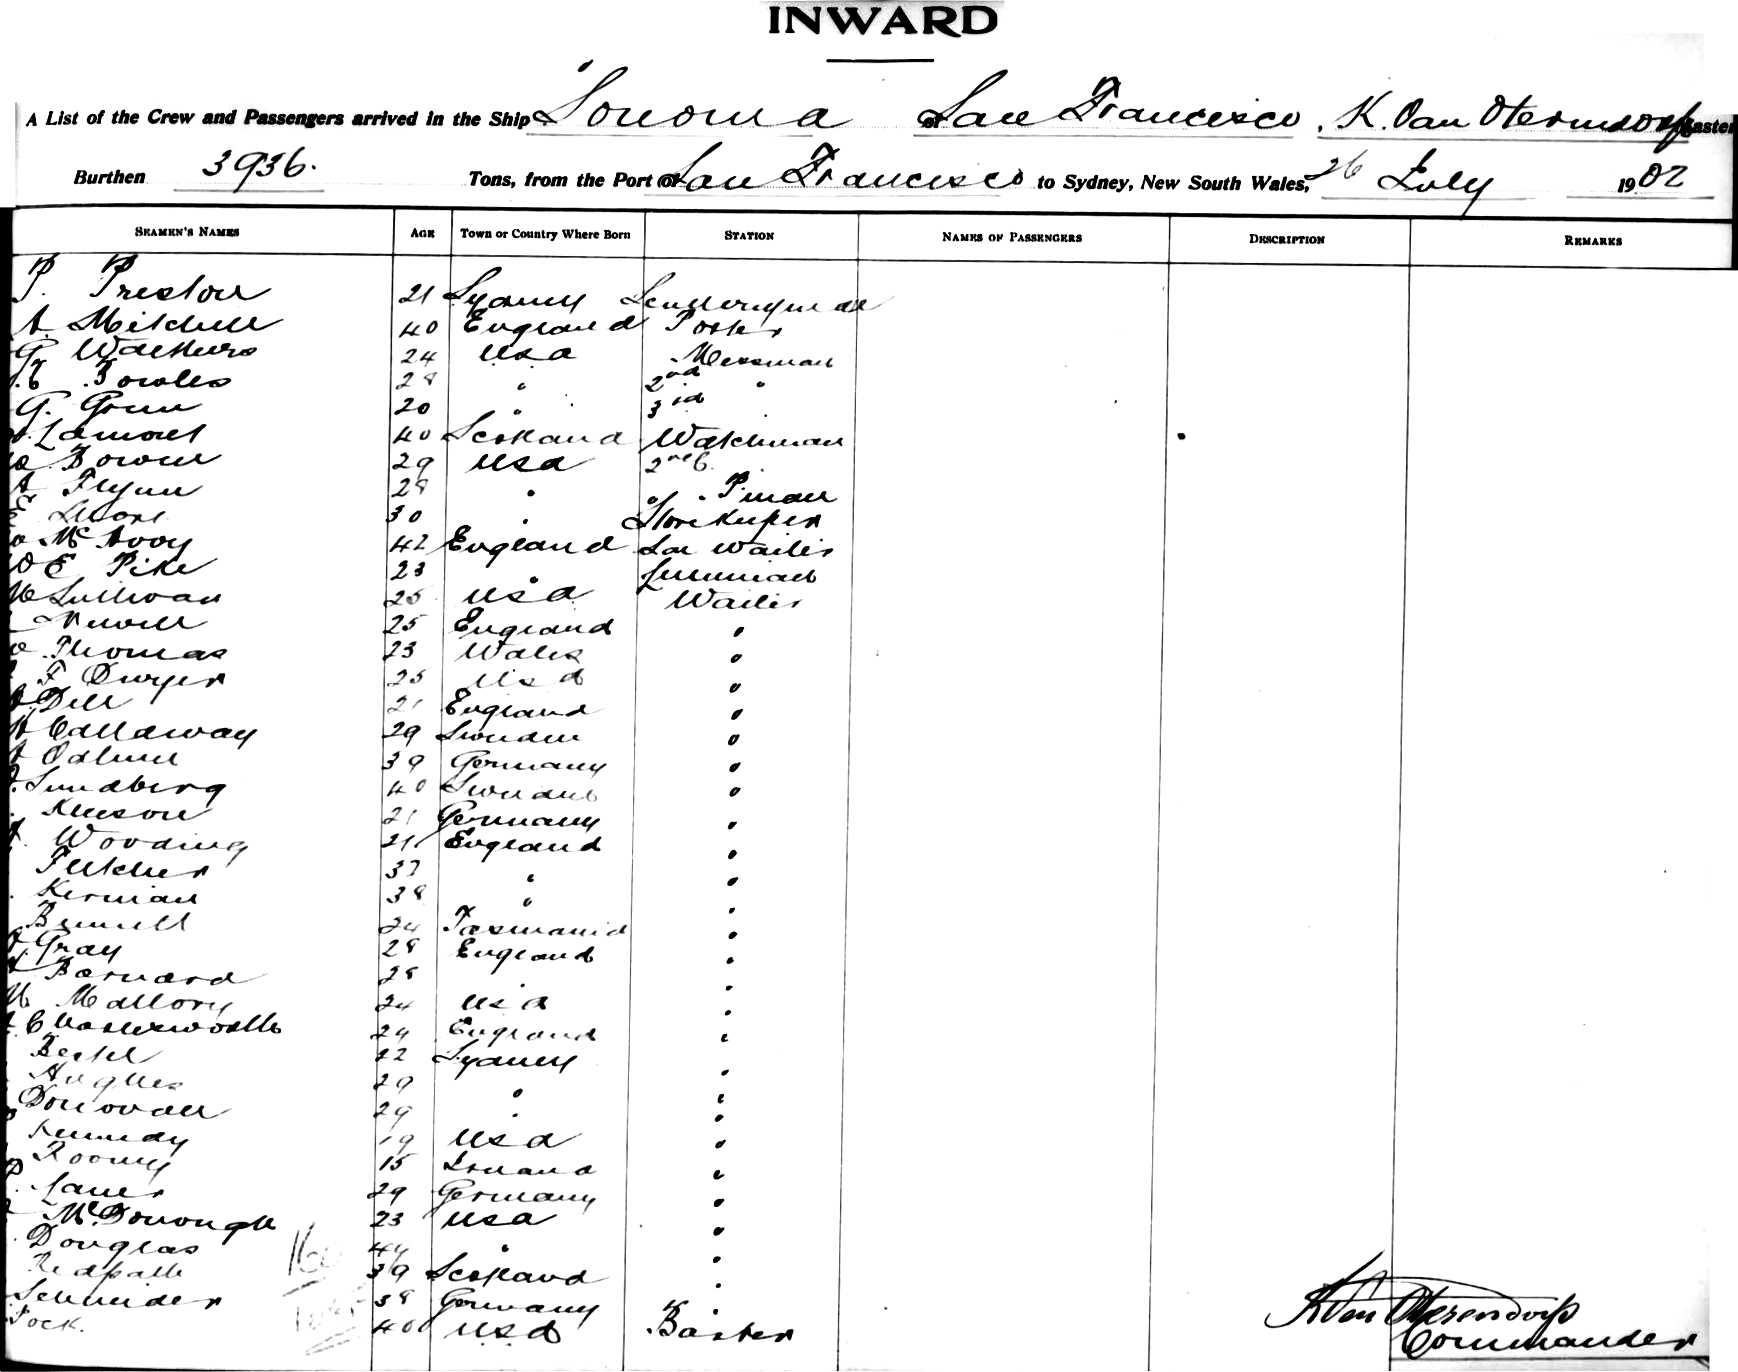 INWARD
A List of the Crew and Passengers arrived in the Ship Sonoma of San Francisco, K. Van Otermdorp Master
Burthen 3936. Tons, from the Port of San Francisco to Sydney, New South Wales, 26 July 1902
SEAMEN'S NAMES AGE Town or Country Where Born STATION NAMES OF PASSENGERS DESCRIPTION REMARKS
P. Preston 21 Sydney
A Mitchell 40 England Porter
G 24 USA Messman
Bowles 28 " 2nd "
G. Green 20 " 3rd
Lamont 40 Scotland Watchman
Bowen 29 USA 2nd
A Flynn 28 " Pman
30 " Storekeeper
McAvoy 42 England Waiter
E Pike 23 "
M Sullivan 25 USA Waiter
Newell 25 England "
Thomas 23 Wales "
F Dwyer 25 USA "
Dell 21 England "
H Callaway 29 Sweden "
A Odlund 39 Germany "
Sundberg 40 Sweden "
21 Germany "
Wooding 21 England "
37 " "
Kernian 38 " "
24 Tasmania "
Gray 28 England "
Barnard 28 " "
M Mallory 24 USA "
24 England "
22 Sydney "
Hughes 29 " "
Donovan 29 " "
Kennedy 19 USA "
Rooney 15 Ireland "
29 Germany "
McDonough 23 USA "
Douglas 44 " "
Redpath 39 Scotland "
Schneider 38 Germany "
40 USA Barber
K Van Oterendorp
Commander